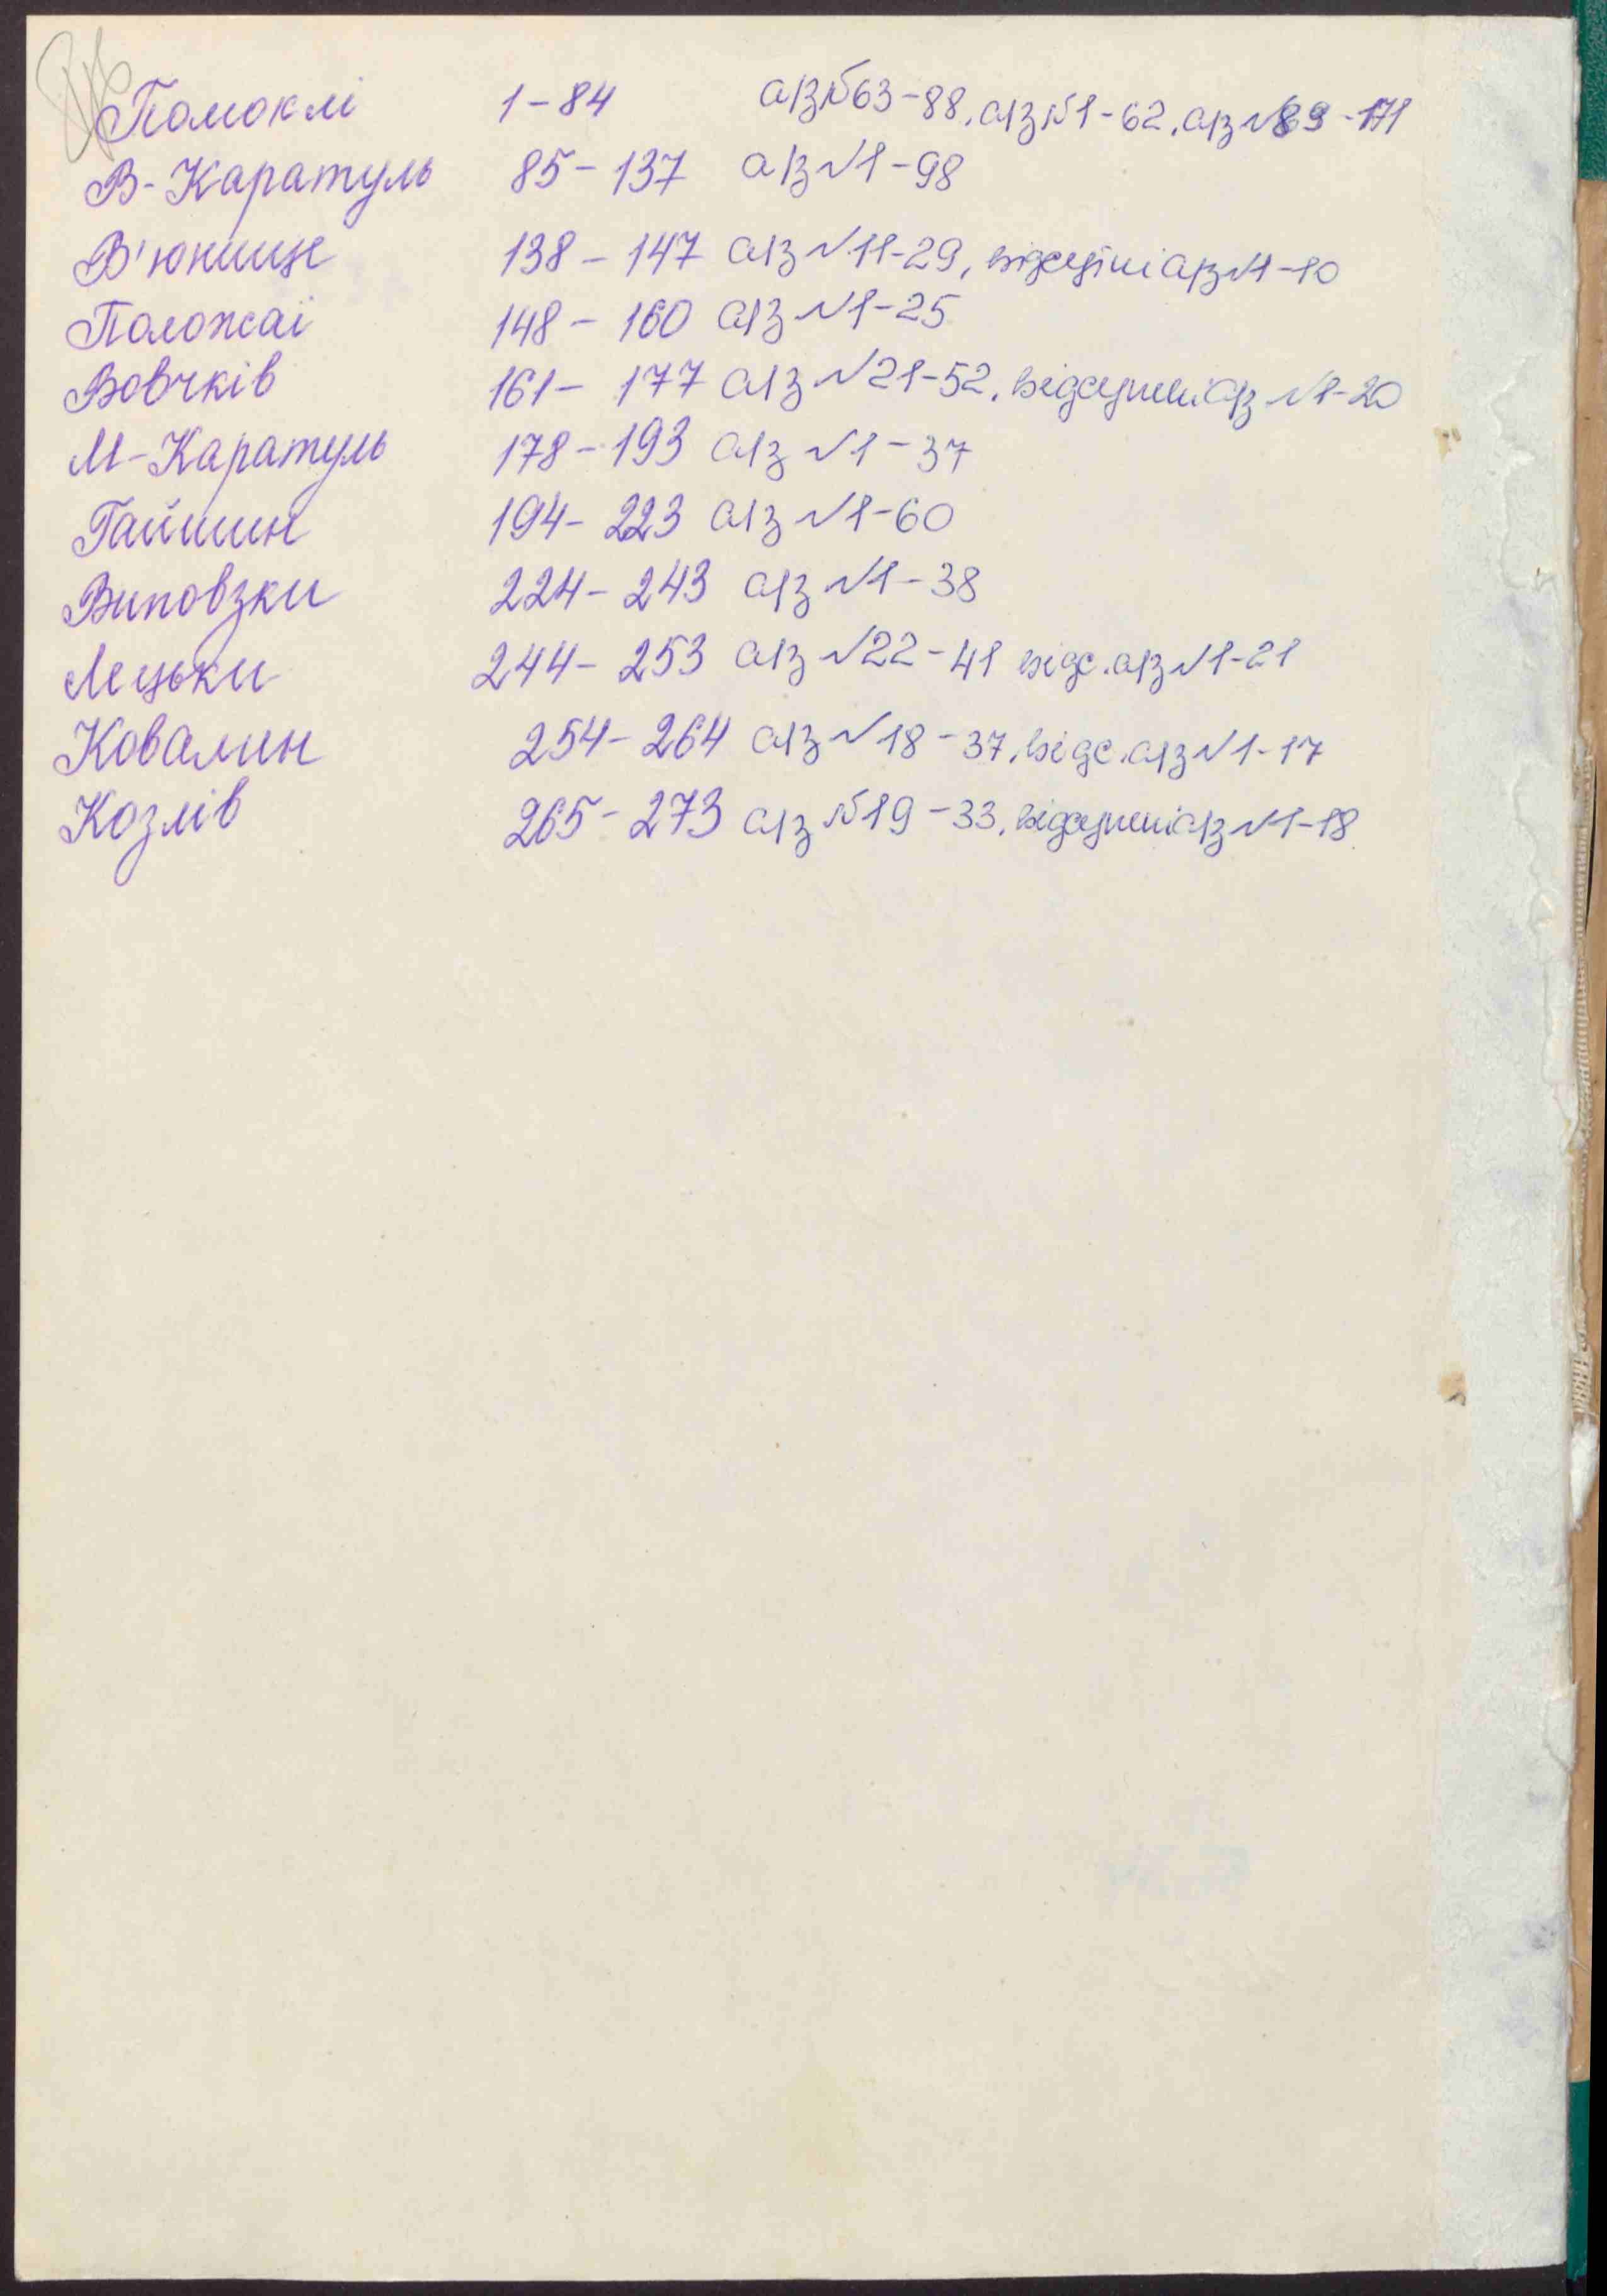 Помоклі 1-84 а/з №63-88, а/з №1-62, а/з №89-171
В-Каратуль 85-137 а/з №1-98
В'юнище 138-147 а/з №11-29, відсутні а/з №1-10
Положаї 148-160 а/з №1-25
Вовчків 161-177 а/з №21-52, відсутні а/з №1-20
М-Каратуль 178-193 а/з №1-37
Гайшин 194-223 а/з №1-60
Виповзки 224-243 а/з №1-38
Мецьки 244-253 а/з №22-41 відс. а/з №1-21
Ковалин 254-264 а/з №18-37, відс. а/з №1-17
Козлів 265-273 а/з №19-33, відсутні а/з №1-18